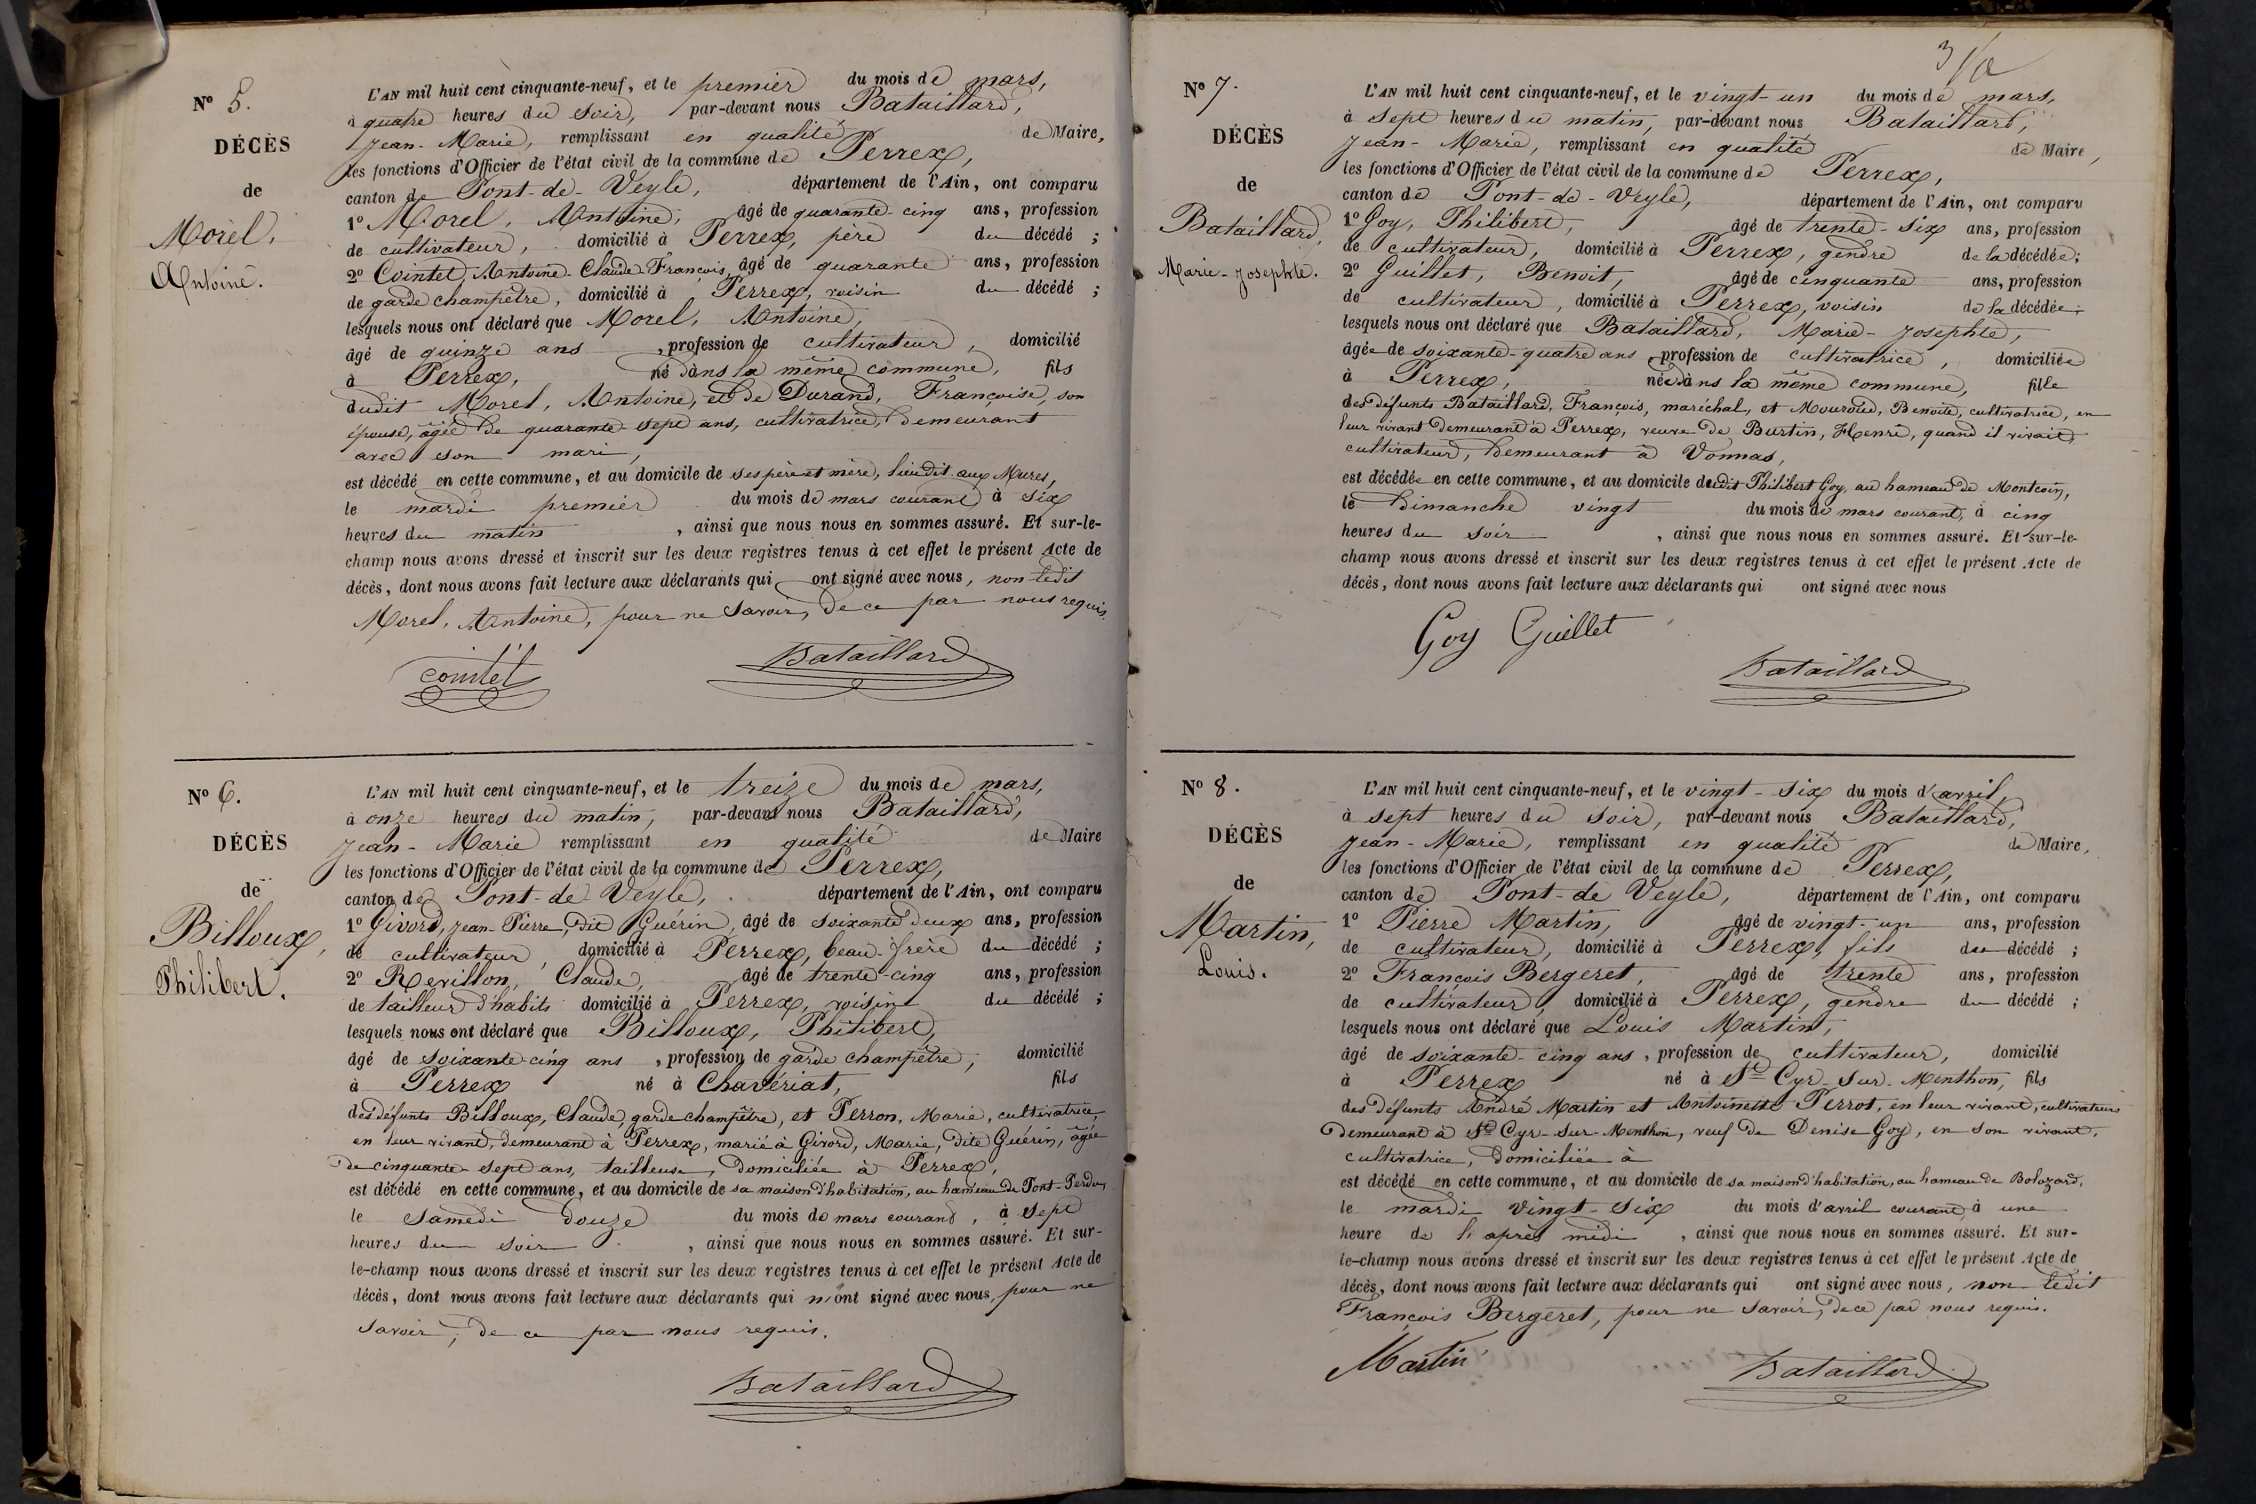 Nº 5.
DÉCÈS
de
Morel,
Antoine.
L'AN mil huit cent cinquante-neuf, et le premier du mois de mars,
à quatre heures du soir, par-devant nous Bataillard,
Jean-Marie, remplissant en qualité de Maire,
les fonctions d'Officier de l'état civil de la commune de Perrex,
canton de Pont-de-Veyle, département de l'Ain, ont comparu
1º Morel, Antoine, âgé de quarante-cinq ans, profession
de cultivateur, domicilié à Perrex, père du décédé ;
2º Cointet, Antoine-Claude-François, âgé de quarante ans, profession
de garde champêtre, domicilié à Perrex, voisin du décédé ;
lesquels nous ont déclaré que Morel, Antoine,
âgé de quinze ans, profession de cultivateur, domicilié
à Perrex, né dans la même commune, fils
dudit Morel, Antoine, et de Durand, Françoise, son
épouse, âgée de quarante-sept ans, cultivatrice, demeurant
avec son mari,
est décédé en cette commune, et au domicile de ses père et mère, lieudit aux Mures,
le mardi premier du mois de mars courant à six
heures du matin, ainsi que nous nous en sommes assuré. Et sur-le-
champ nous avons dressé et inscrit sur les deux registres tenus à cet effet le présent Acte de
décès, dont nous avons fait lecture aux déclarants qui ont signé avec nous, non ledit
Morel, Antoine, pour ne savoir, de ce par nous requis.
Cointet Bataillard
Nº 6.
DÉCÈS
de
Billoux,
Philibert.
L'AN mil huit cent cinquante-neuf, et le treize du mois de mars,
à onze heures du matin, par-devant nous Bataillard,
Jean-Marie remplissant en qualité de Maire
les fonctions d'Officier de l'état civil de la commune de Perrex,
canton de Pont-de-Veyle, département de l'Ain, ont comparu
1º Givord, Jean-Pierre, dit Guérin, âgé de soixante deux ans, profession
de cultivateur, domicilié à Perrex, beau-frère du décédé ;
2º Revillon, Claude, âgé de trente-cinq ans, profession
de tailleur d'habits domicilié à Perrex, voisin du décédé ;
lesquels nous ont déclaré que Billoux, Philibert,
âgé de soixante-cinq ans, profession de garde champêtre, domicilié
à Perrex né à Chavériat, fils
des défunts Billoux, Claude, garde champêtre, et Perron, Marie, cultivatrice,
en leur vivant, demeurant à Perrex, marié à Givord, Marie, dite Guérin, âgée
de cinquante-sept ans, tailleuse, domiciliée à Perrex,
est décédé en cette commune, et au domicile de sa maison d'habitation, au hameau de Pont-Perdu,
le samedi douze du mois de mars courant, à sept
heures du soir, ainsi que nous nous en sommes assuré. Et sur-
le-champ nous avons dressé et inscrit sur les deux registres tenus à cet effet le présent Acte de
décès, dont nous avons fait lecture aux déclarants qui n'ont signé avec nous, pour ne
savoir, de ce par nous requis.
Bataillard
Nº 7.
DÉCÈS
de
Bataillard,
Marie-Josephte.
L'AN mil huit cent cinquante-neuf, et le vingt-un du mois de mars,
à sept heures du matin, par-devant nous Bataillard,
Jean-Marie, remplissant en qualité de Maire,
les fonctions d'Officier de l'état civil de la commune de Perrex,
canton de Pont-de-Veyle, département de l'Ain, ont comparu
1º Goy, Philibert, âgé de trente-six ans, profession
de cultivateur, domicilié à Perrex, gendre de la décédée ;
2º Guillet, Benoit, âgé de cinquante ans, profession
de cultivateur, domicilié à Perrex, voisin de la décédée ;
lesquels nous ont déclaré que Bataillard, Marie-Josephte,
âgée de soixante-quatre ans, profession de cultivatrice, domiciliée
à Perrex, née dans la même commune, fille
des défunts Bataillard, François, maréchal, et Mouroud, Benoite, cultivatrice, en
leur vivant demeurant à Perrex, veuve de Burtin, Henri, quand il vivait
cultivateur, demeurant à Vonnas,
est décédée en cette commune, et au domicile dudit Philibert Goy, au hameau de Montcoin,
le dimanche vingt du mois de mars courant, à cinq
heures du soir, ainsi que nous nous en sommes assuré. Et sur-le-
champ nous avons dressé et inscrit sur les deux registres tenus à cet effet le présent Acte de
décès, dont nous avons fait lecture aux déclarants qui ont signé avec nous
Goy Guillet
Bataillard
Nº 8.
DÉCÈS
de
Martin,
Louis.
L'AN mil huit cent cinquante-neuf, et le vingt-six du mois d'avril,
à sept heures du soir, par-devant nous Bataillard,
Jean-Marie, remplissant en qualité de Maire,
les fonctions d'Officier de l'état civil de la commune de Perrex,
canton de Pont-de Veyle, département de l'Ain, ont comparu
1º Pierre Martin, âgé de vingt-un ans, profession
de cultivateur, domicilié à Perrex, fils du décédé ;
2º François Bergeret, âgé de trente ans, profession
de cultivateur, domicilié à Perrex, gendre du décédé ;
lesquels nous ont déclaré que Louis Martin,
âgé de soixante-cinq ans, profession de cultivateur, domicilié
à Perrex né à St Cyr-sur-Menthon, fils
des défunts André Martin et Antoinette Perrot, en leur vivant, cultivateurs
demeurant à St Cyr-sur-Menthon, veuf de Denise Goy, en son vivant,
cultivatrice, domiciliée à
est décédé en cette commune, et au domicile de sa maison d'habitation, au hameau de Bolozard,
le mardi vingt-six du mois d'avril courant, à une
heure de l'après midi, ainsi que nous nous en sommes assuré. Et sur-
le-champ nous avons dressé et inscrit sur les deux registres tenus à cet effet le présent Acte de
décès, dont nous avons fait lecture aux déclarants qui ont signé avec nous, non ledit
François Bergeret, pour ne savoir, de ce par nous requis.
Martin Bataillard